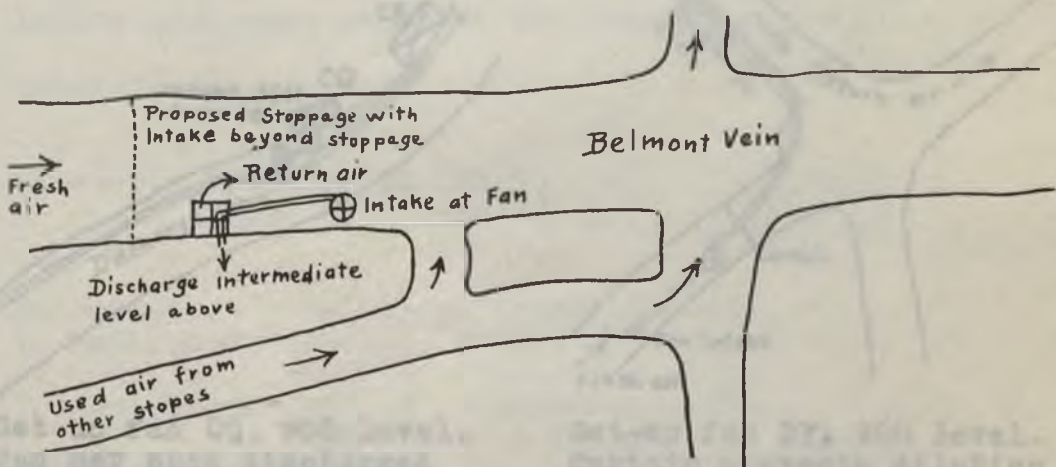 Proposed Stoppage with
Intake beyond stoppage
Return air
Fresh
air
Intake at Fan
Belmont Vein
Discharge intermediate
level above
Used air from
other stopes